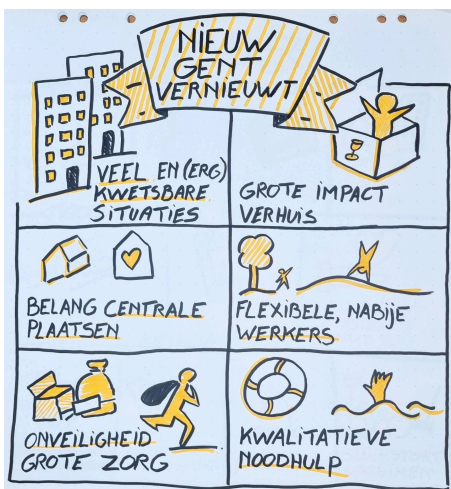 NIEUW
GENT
VERNIEUWT
VEEL EN (ERG)
KWETSBARE
SITUATIES
GROTE IMPACT
VERHUIS
BELANG CENTRALE
PLAATSEN
FLEXIBELE, NABIJE
WERKERS
ONVEILIGHEID
GROTE ZORG
KWALITATIEVE
NOODHULP